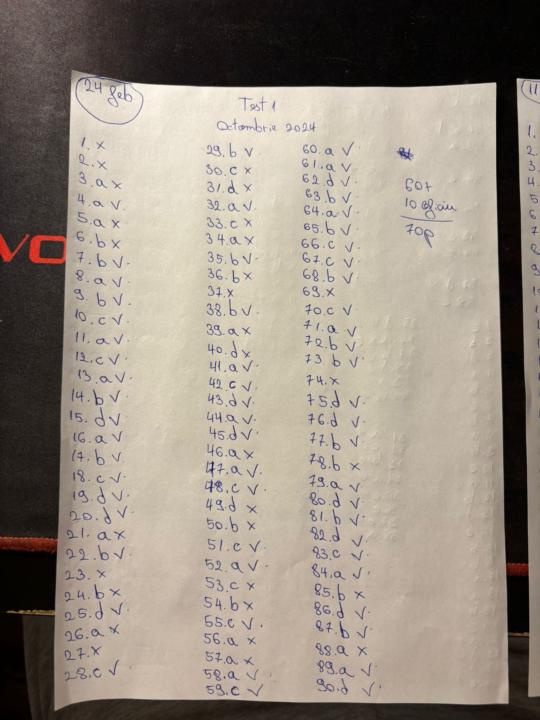 24 feb
Test 1
Octombrie 2024
1. x
2. x
3. a x
4. a v
5. a x
6. b x
7. b v
8. a v
9. b v
10. c v
11. a v
12. c v
13. a v
14. b v
15. d v
16. a v
17. b v
18. c v
19. d v
20. d v
21. a x
22. b v
23. x
24. b x
25. d v
26. a x
27. x
28. c v
29. b v
30. c x
31. d x
32. a v
33. c x
34. a x
35. b v
36. b x
37. x
38. b v
39. a x
40. d x
41. a v
42. c v
43. d v
44. a v
45. d v
46. a x
47. a v
48. c v
49. d x
50. b x
51. c v
52. a v
53. c x
54. b x
55. c v
56. a x
57. a x
58. a v
59. c v
60. a v
61. a v
62. d v
63. b v
64. a v
65. b v
66. c v
67. c v
68. b v
69. x
70. c v
71. a v
72. b v
73. b v
74. x
75. d v
76. d v
77. b v
78. b x
79. a v
80. d v
81. b v
82. d v
83. c v
84. a v
85. b x
86. d v
87. b v
88. a x
89. a v
90. d v
60+
10 oficiu
70p
VO
11
1.
2.
3.
4.
5.
6.
7
8